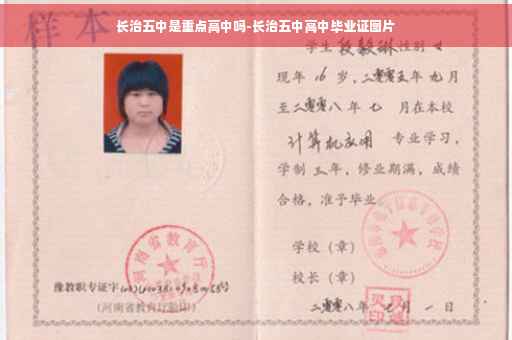 长治五中是重点高中吗-长治五中高中毕业证图片
样本
学生段毅琳性别女
现年16岁,二零零五年九月
至二零零八年七月在本校
计算机应用专业学习,
学制三年,修业期满,成绩
合格,准予毕业。
学校(章)
校长(章)
二零零八年七月一日
河南省教育厅
豫教职专证字
(河南省教育厅验印)